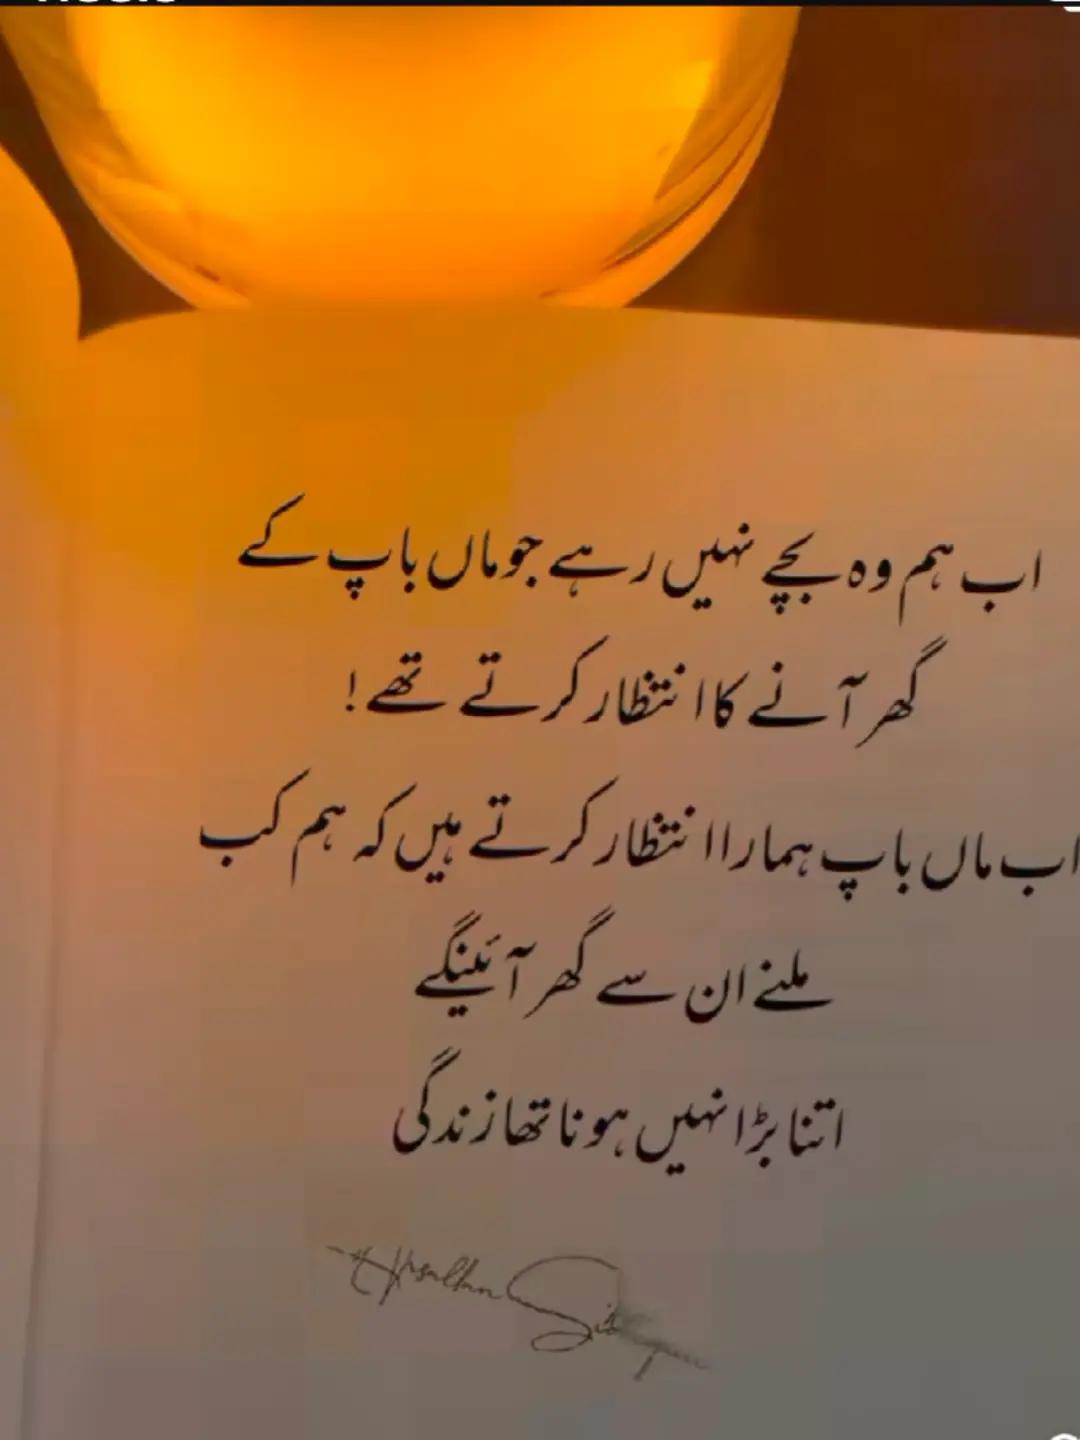 اب ہم وہ بچے نہیں رہے جو ماں باپ کے
گھر آنے کا انتظار کرتے تھے !
اب ماں باپ ہمارا انتظار کرتے ہیں کہ ہم کب
ملنے ان سے گھر آئینگے
اتنا بڑا نہیں ہونا تھا زندگی